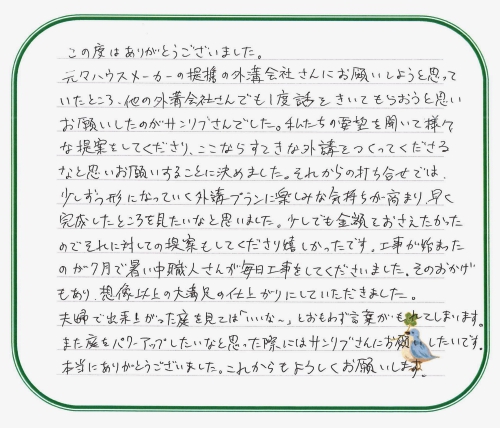 この度はありがとうございました。
元々ハウスメーカーの提携の外溝会社さんにお願いしようと思って
いたところ、他の外溝会社さんでも1度話をきいてもらおうと思い
お願いしたのがサンリブさんでした。私たちの要望を聞いて様々
な提案をしてくださり、ここならすてきな外講をつくってくださる
なと思いお願いすることに決めました。それからの打ち合せでは、
少しずつ形になっていく外講プランに楽しみな気持ちが高まり、早く
完成したところを見たいなと思いました。少しでも金額をおさえたかった
のでそれに対しての提案もしてくださり嬉しかったです。工事が始まった
のが7月で暑い中職人さんが毎日工事をしてくださいました。そのおかげ
もあり、想像以上の大満足の仕上がりにしていただきました。
夫婦で出来上がった庭を見ては「いいな〜」とおもわず言葉がもれてしまいます。
また庭をパワーアップしたいなと思った際にはサンリブさんにお願いしたいです。
本当にありがとうございました。これからもよろしくお願いします。